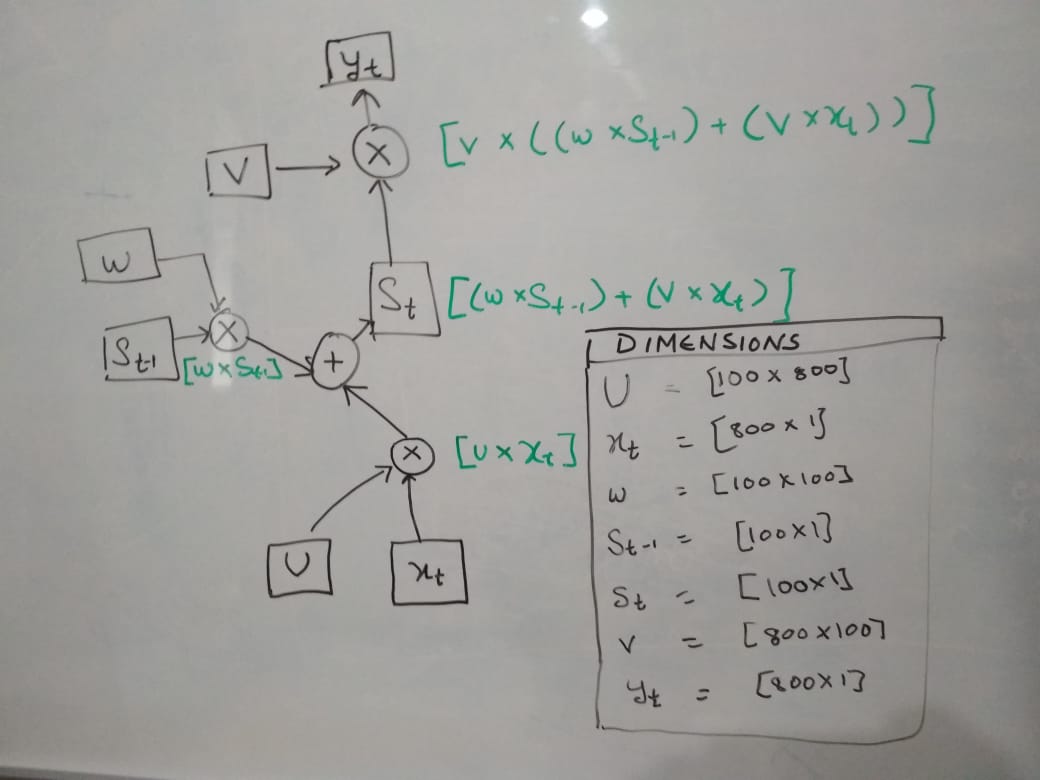 yt
× [V × ((w × St-1) + (V × xt))]
V
w
St [(w × St-1) + (V × xt)]
St-1 × [w × St-1] +
× [U × xt]
U xt
DIMENSIONS
U = [100 × 800]
xt = [800 × 1]
w = [100 × 100]
St-1 = [100 × 1]
St = [100 × 1]
V = [800 × 100]
yt = [800 × 1]